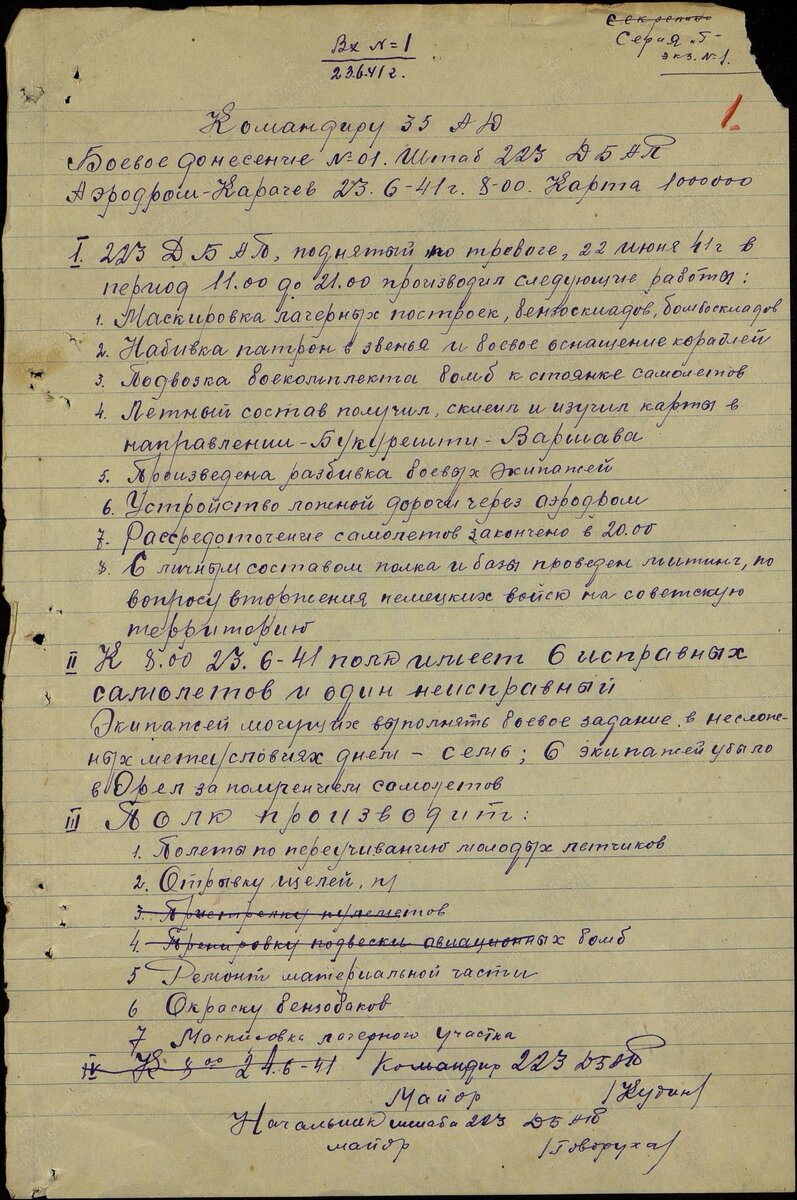 секретно
Серия „Г"
экз. №1.
Вх №=1
23.6.41г.
1.
Командиру 35 АД
Боевое донесение №01. Штаб 223 ДБАП
Аэродром-Карачев 23.6-41г. 8-00. Карта 1000000
I. 223 ДБАП, поднятый по тревоге, 22 июня 41г в
период 11.00 до 21.00 производил следующие работы:
1. Маскировка лагерных построек, бензоскладов, бомбоскладов
2. Набивка патрон в звенья и боевое оснащение кораблей
3. Подвозка боекомплекта бомб к стоянке самолетов
4. Летный состав получил, склеил и изучил карты в
направлении-Букурешти-Варшава
5. Произведена разбивка боевых экипажей
6. Устройство ложной дороги через аэродром
7. Рассредоточение самолетов закончено в 20.00
8. С личным составом полка и базы проведен митинг, по
вопросу вторжения немецких войск на советскую
территорию
II К 8.00 23.6-41 полк имеет 6 исправных
самолетов и один неисправный
Экипажей могущих выполнять боевое задание в неслож-
ных метеусловиях днем - семь; 6 экипажей убыло
в Орел за получением самолетов
III Полк производит:
1. Полеты по переучиванию молодых летчиков
2. Отрывку щелей,
3. Пристрелку пулеметов
4. Тренировку подвески авиационных бомб
5 Ремонт материальной части
6 Окраску бензобаков
7 Маскировка лагерного участка
IV К 8 00 24.6-41 Командир 223 ДБАП
Майор /Кудин/
Начальник штаба 223 ДБАП
майор /Говоруха/